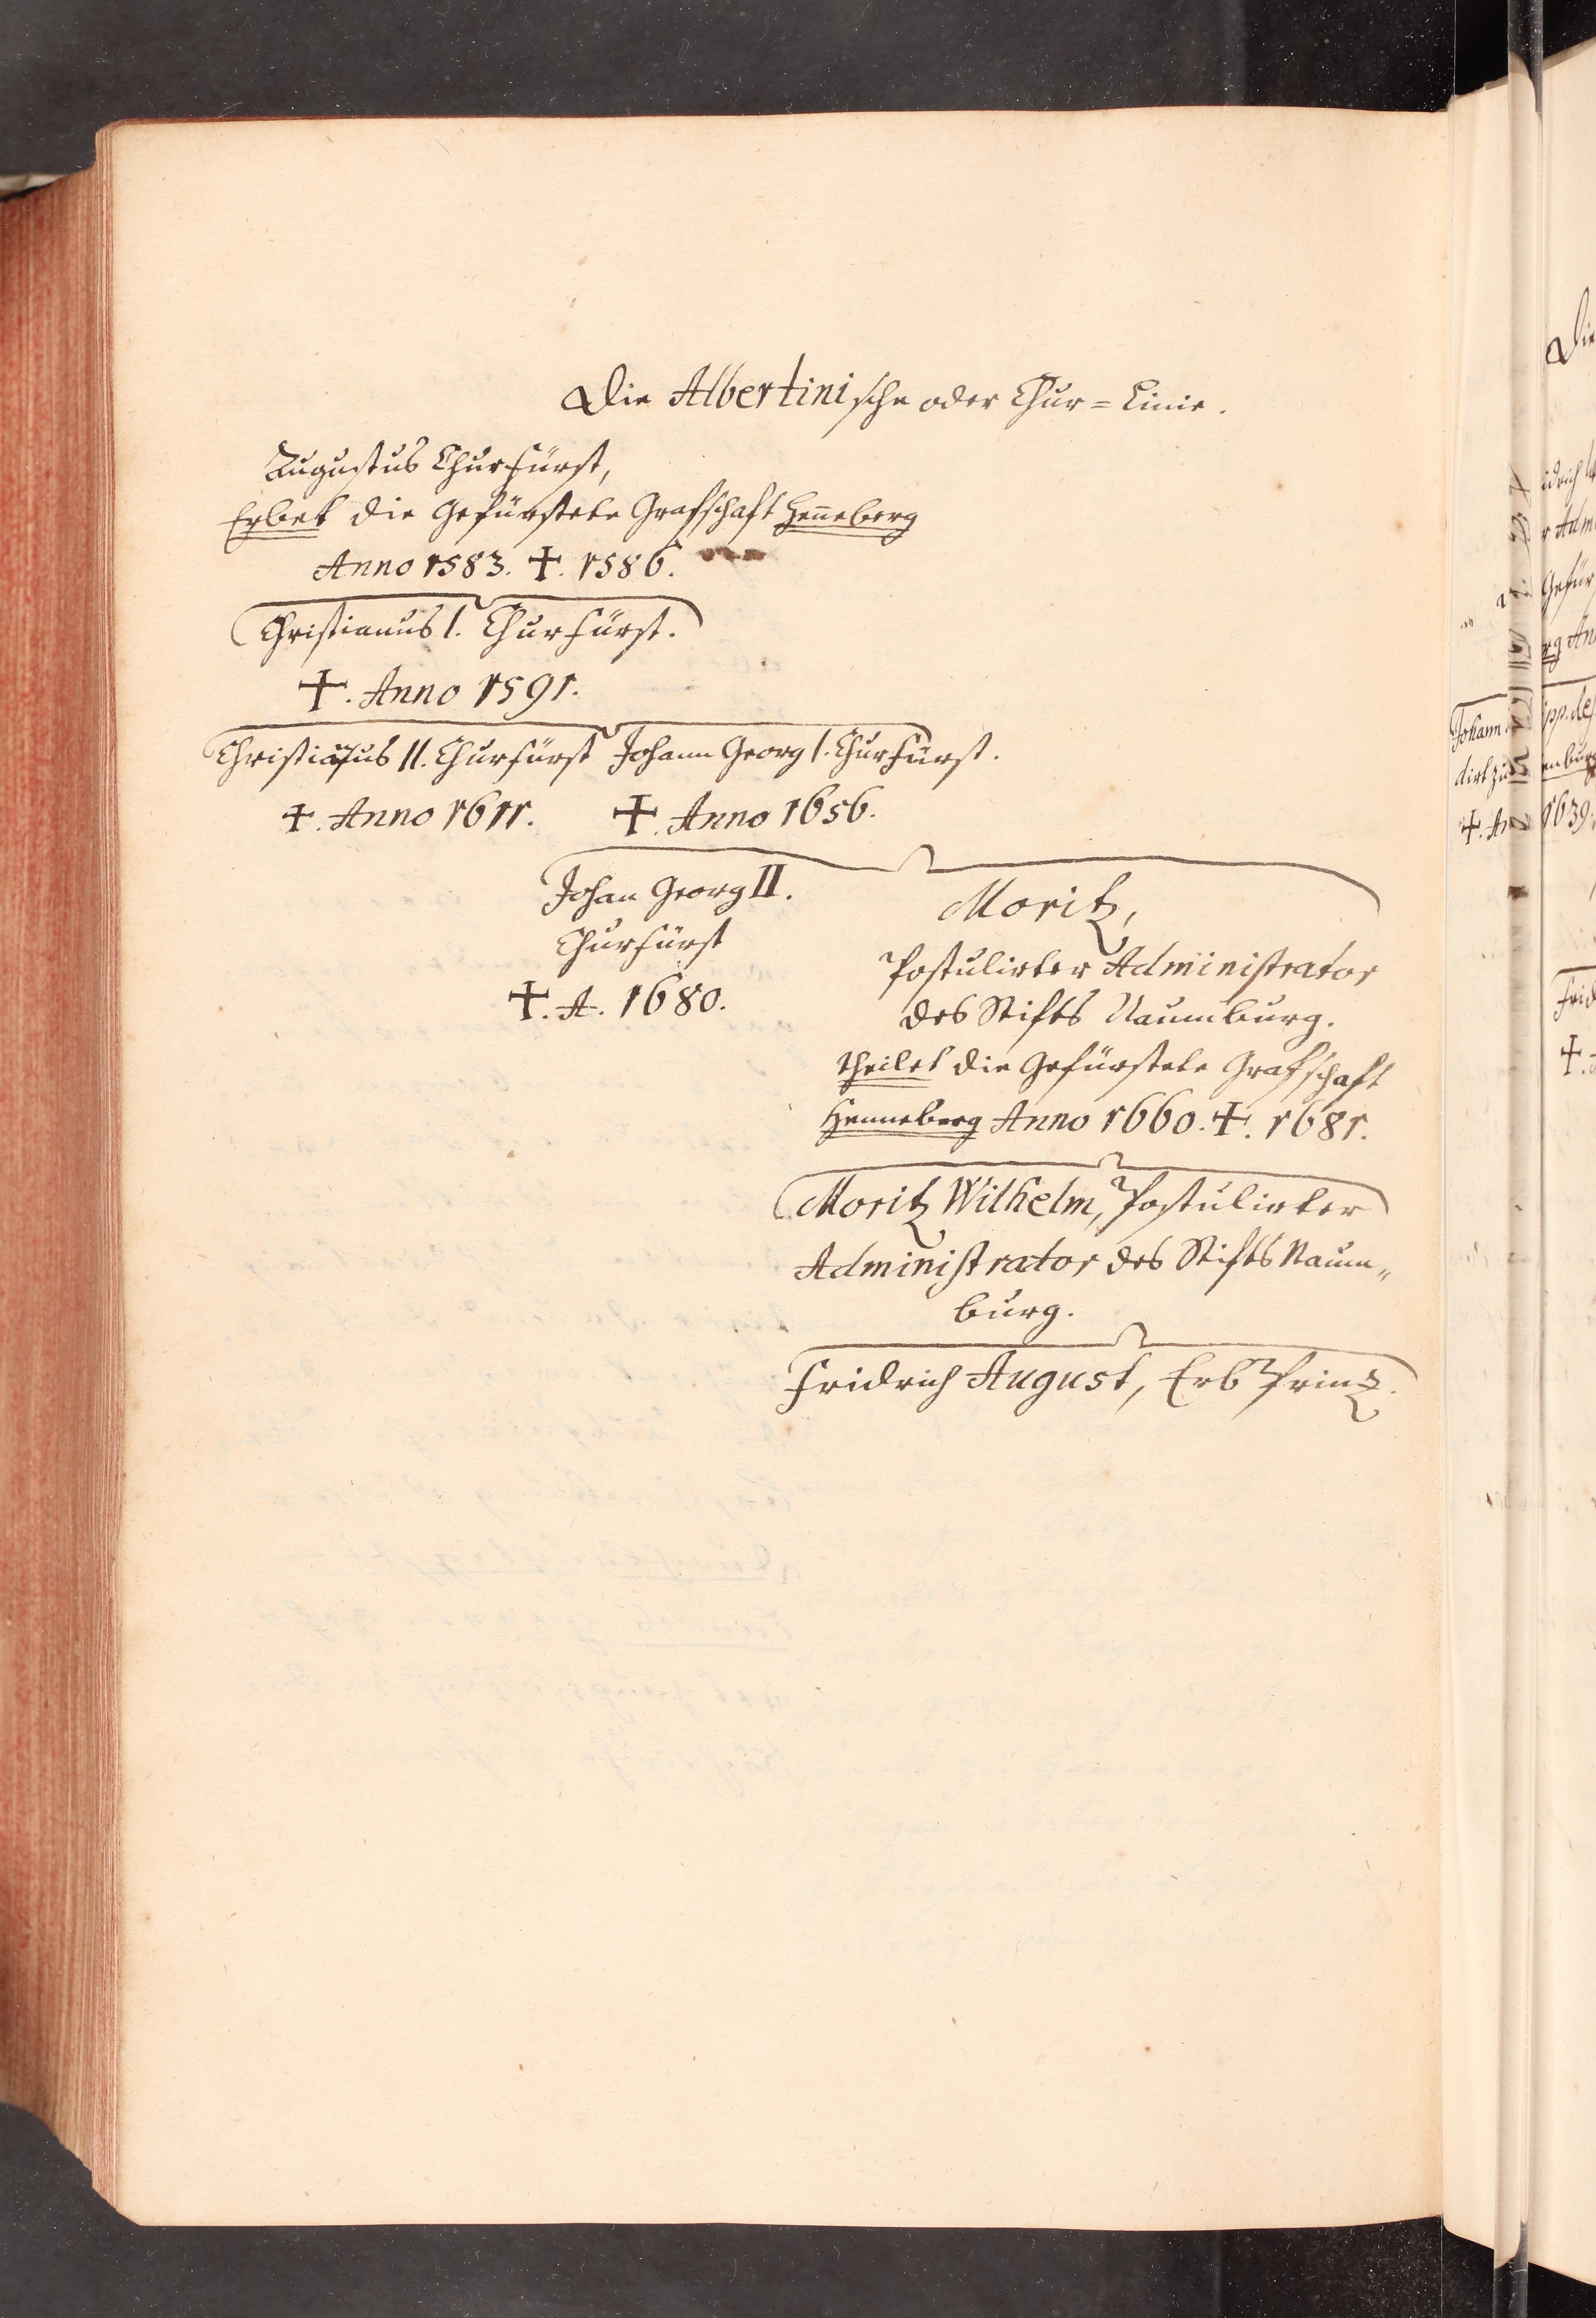 Die Albertinische oder Chur=Linie.
Augustus Churfürst,
Erbet die Gefürstete Grafschaft Henneberg
Anno 1583. ✝. 1586.
Christianus I. Churfürst.
✝. Anno 1591.
Christianus II. Churfürst Johann Georg I. Churfürst.
✝. Anno 1611. ✝. Anno 1656.
Johan Georg II.
Churfürst
✝. A. 1680.
Moritz,
Postulirter Administrator
des Stifts Naumburg.
theilet die Gefürstete Grafschaft
Henneberg Anno 1660. ✝. 1681.
Moritz Wilhelm, Postulirter
Administrator des Stifts Naum„
burg.
Fridrich August, Erb Prinz.